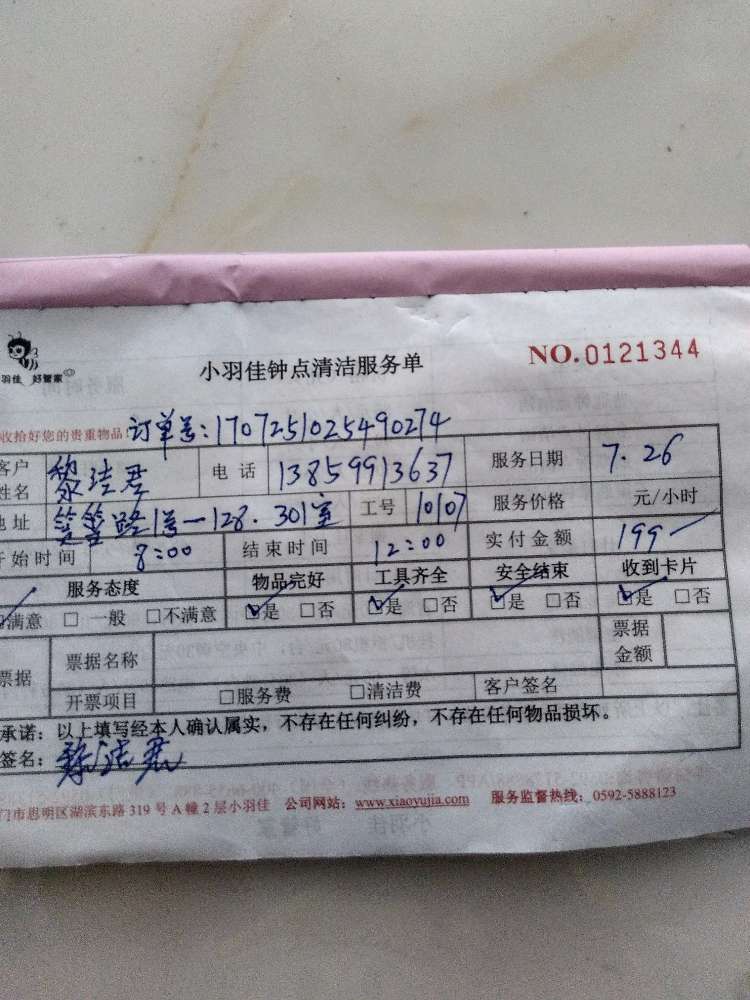 羽佳 好管家
小羽佳钟点清洁服务单
NO.0121344
收拾好您的贵重物品! 订单号:1707251025490274
客户姓名 黎洁君 电话 13859913637 服务日期 7.26
地址 筼筜路1号-128.301室 工号 10107 服务价格 元/小时
开始时间 8:00 结束时间 12:00 实付金额 199
服务态度 物品完好 工具齐全 安全结束 收到卡片
☑满意 □一般 □不满意 ☑是 □否 ☑是 □否 ☑是 □否 ☑是 □否
票据 票据名称 票据金额
开票项目 □服务费 □清洁费 客户签名
承诺:以上填写经本人确认属实,不存在任何纠纷,不存在任何物品损坏。
签名:黎洁君
门市思明区湖滨东路319号A幢2层小羽佳 公司网站:www.xiaoyujia.com 服务监督热线:0592-5888123